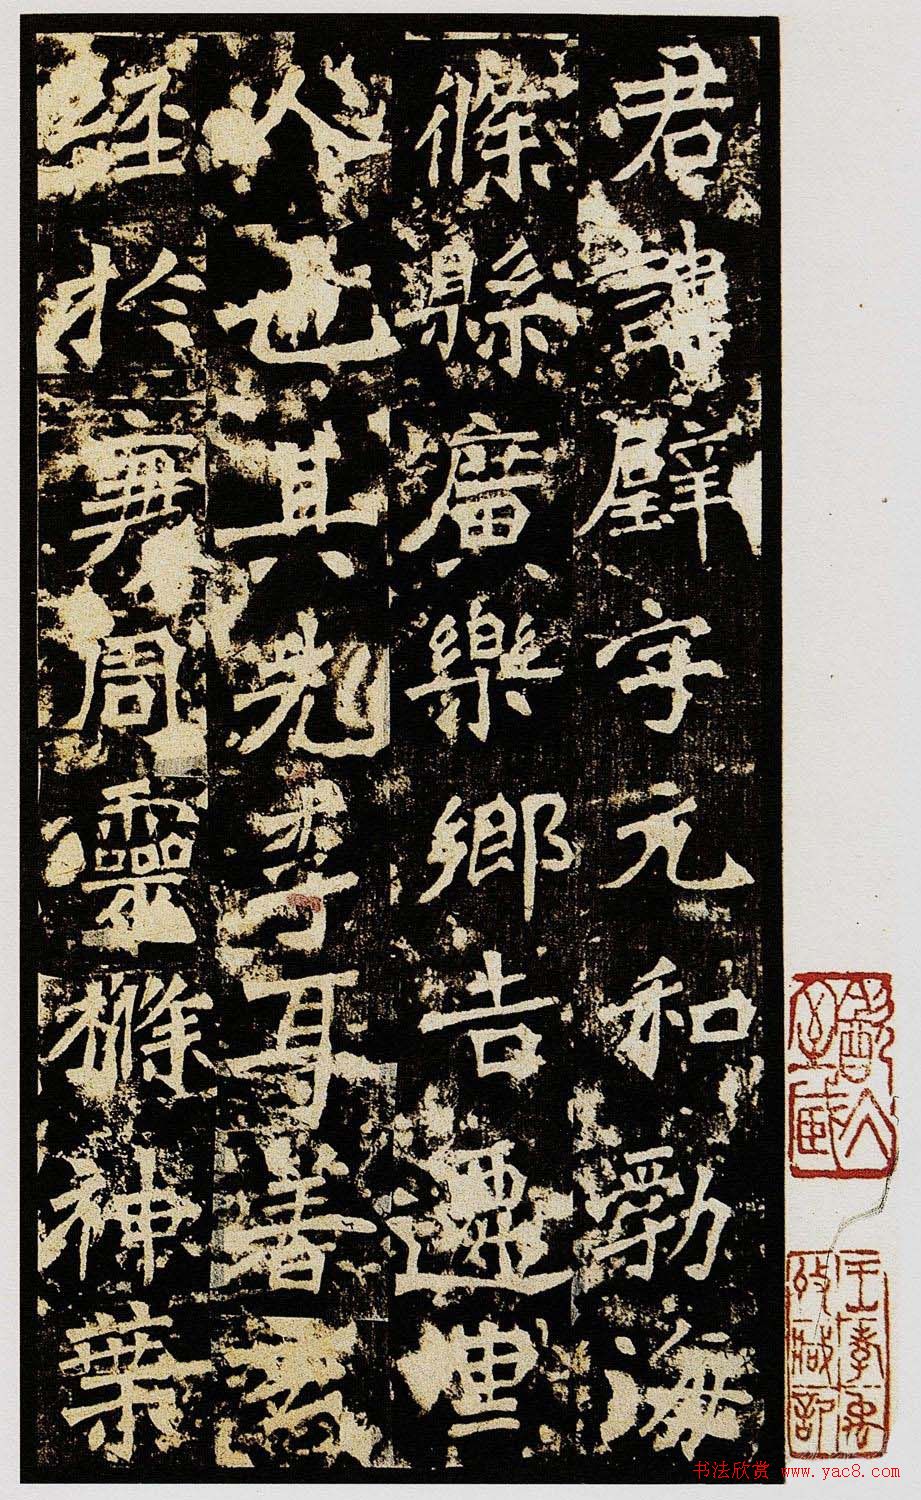 君諱璧字元和勃海
條縣廣樂鄉吉遷里
人也其先李耳著玄
經於衰周靈樤神葉
书法欣赏 www.yac8.com